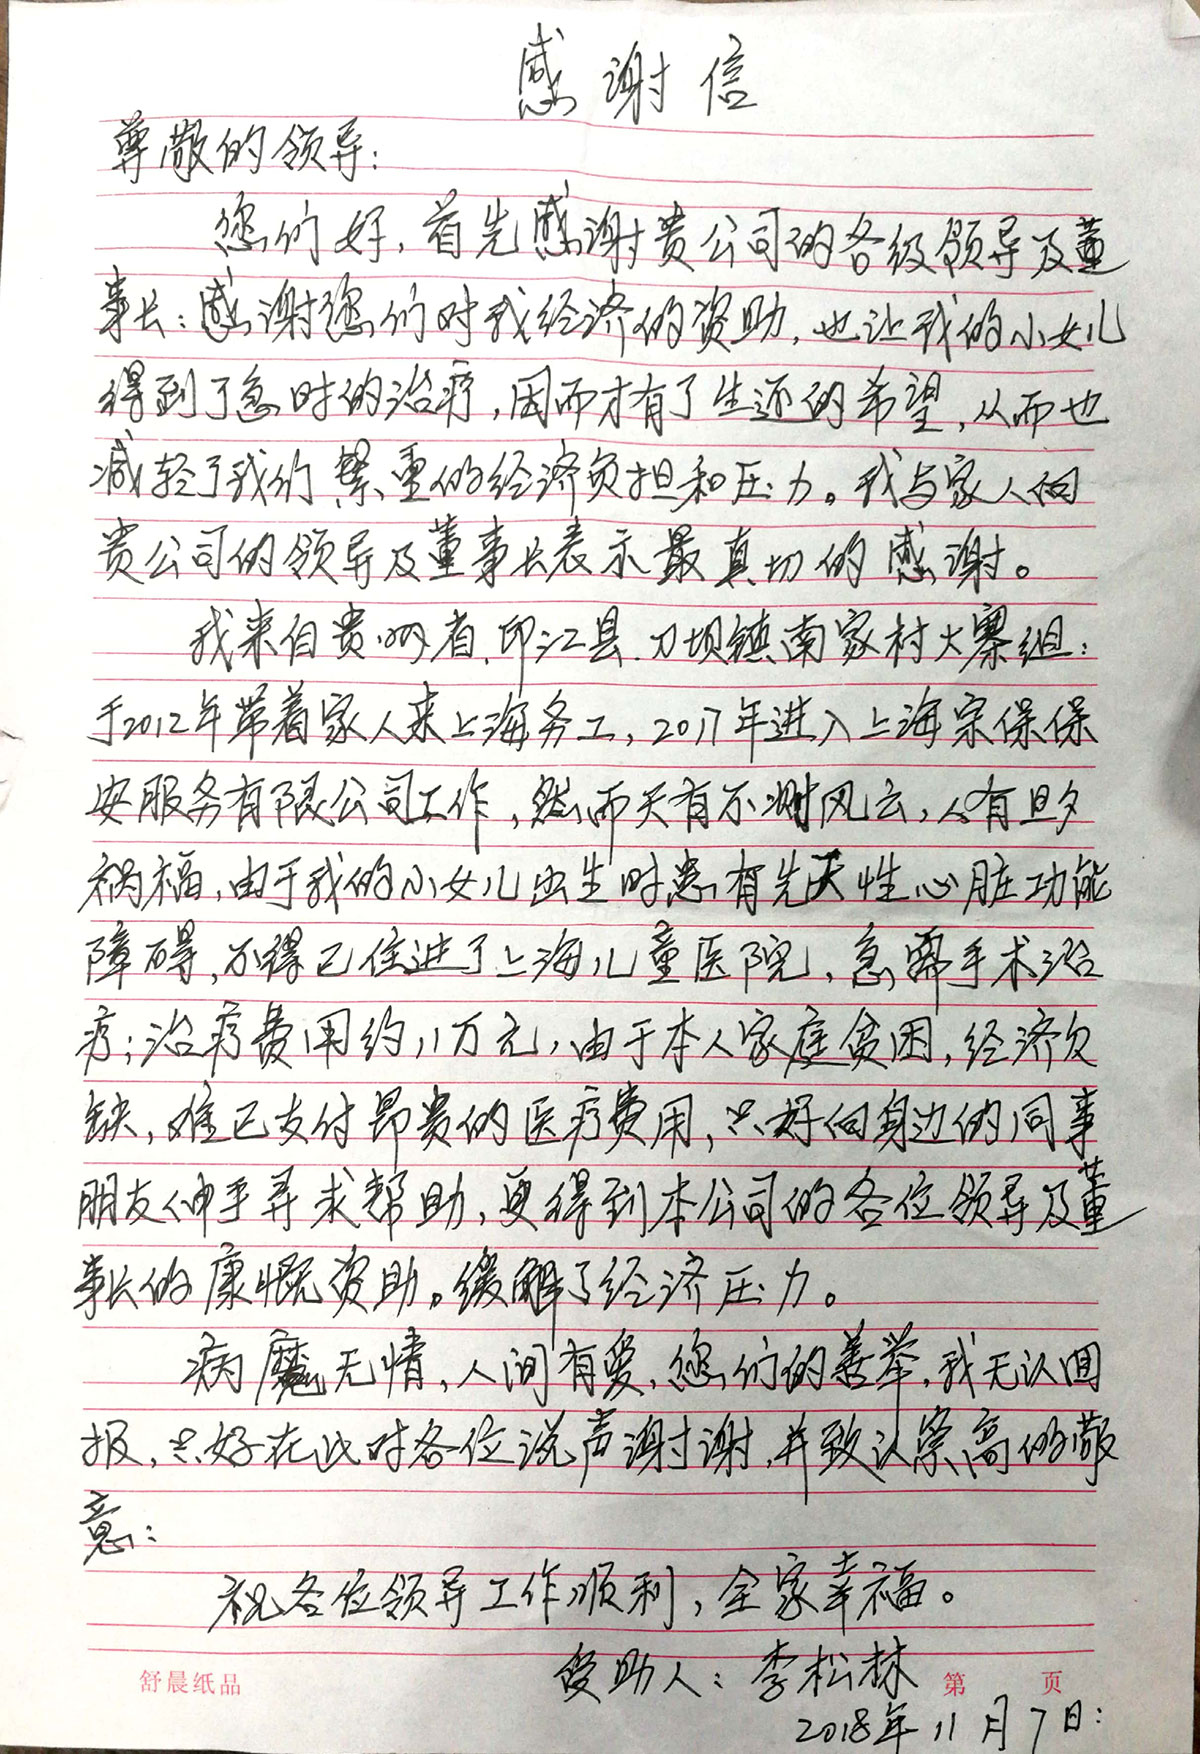 感谢信
尊敬的领导:
您们好,首先感谢贵公司的各级领导及董
事长:感谢您们对我经济的资助,也让我的小女儿
得到了急时的治疗,因而才有了生还的希望,从而也
减轻了我们繁重的经济负担和压力。我与家人向
贵公司的领导及董事长表示最真切的感谢。
我来自贵州省.印江县.刀坝镇南家村大寨组:
于2012年带着家人来上海务工,2017年进入上海宗保保
安服务有限公司工作,然而天有不测风云,人有旦夕
祸福,由于我的小女儿出生时患有先天性心脏功能
障碍,不得已住进了上海儿童医院,急需手术治
疗;治疗费用约11万元,由于本人家庭贫困,经济欠
缺,难已支付昂贵的医疗费用,只好向身边的同事
朋友伸手寻求帮助,更得到本公司的各位领导及董
事长的康慨资助。缓解了经济压力。
病魔无情,人间有爱,您们的善举,我无认回
报,只好在此对各位说声谢谢,并致认崇高的敬
意:
祝各位领导工作顺利,全家幸福。
受助人:李松林
舒晨纸品 第 页
2018年11月7日: